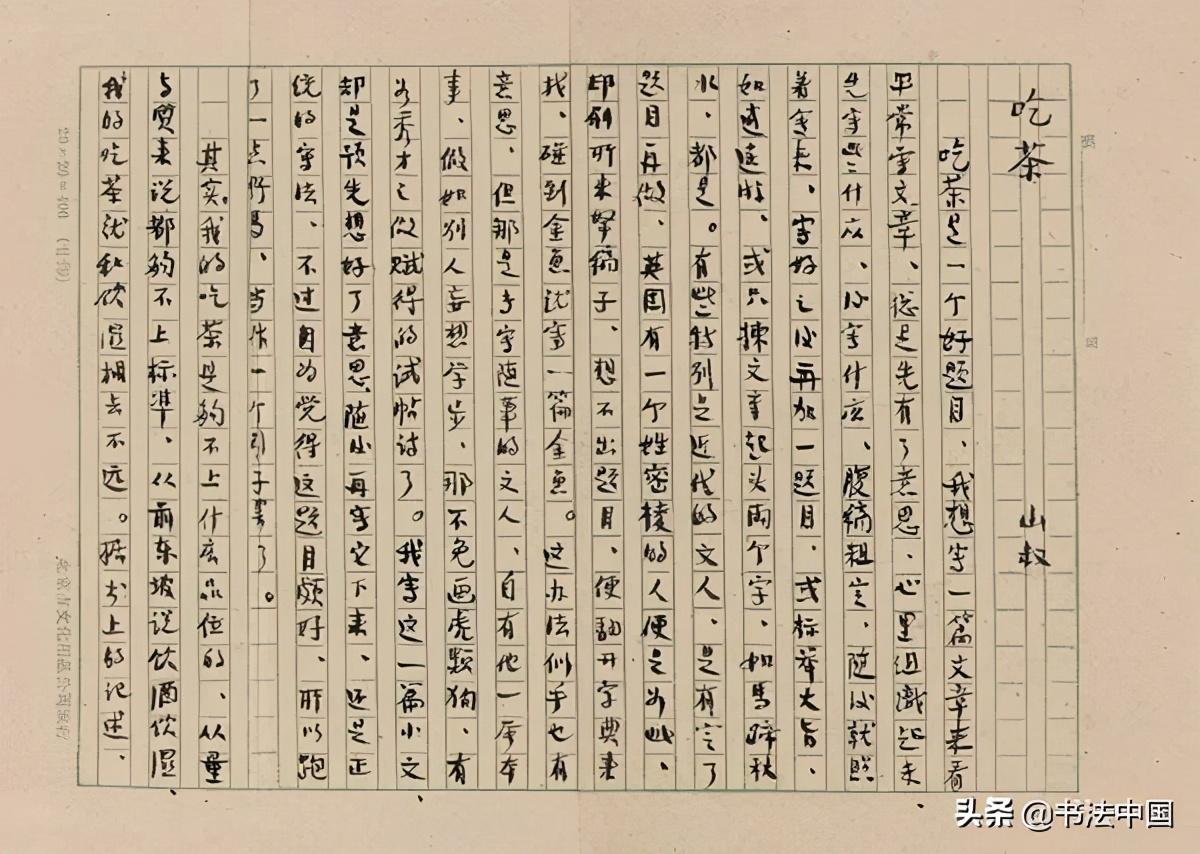 吃茶
山叔
吃茶是一个好题目、我想写一篇文章来看
平常写文章、总是先有了意思、心里组织起来、
先写些什么、后写什么、腹稿粗定、随后就照
着写来、写好之后再加一题目、或标举大旨、
如逍遥游、或只拣文章起头两个字、如马蹄秋
水、都是。有些特别是近代的文人、是有定了
题目再做、英国有一个姓密棱的人便是如此、
印刷所来拏稿子、想不出题目、便翻开字典来
找、碰到金鱼就写一篇金鱼。这办法似乎也有
意思、但那是专写随笔的文人、自有他一层本
事、做如别人妄想学步、那不免画虎类狗、有
如秀才之做赋得的试帖诗了。我写这一篇小文、
却是预先想好了意思、随后再写它下来、还是正
统的写法、不过自为觉得这题目颇好、所以跑
了一点野马、当作一个引子罢了。
其实、我的吃茶是够不上什么品位的、从量
与质来说都够不上标准、从前东坡说饮酒饮湿、
我的吃茶就和饮湿相去不远。据书上的记述、
20×20=400
头条 @书法中国